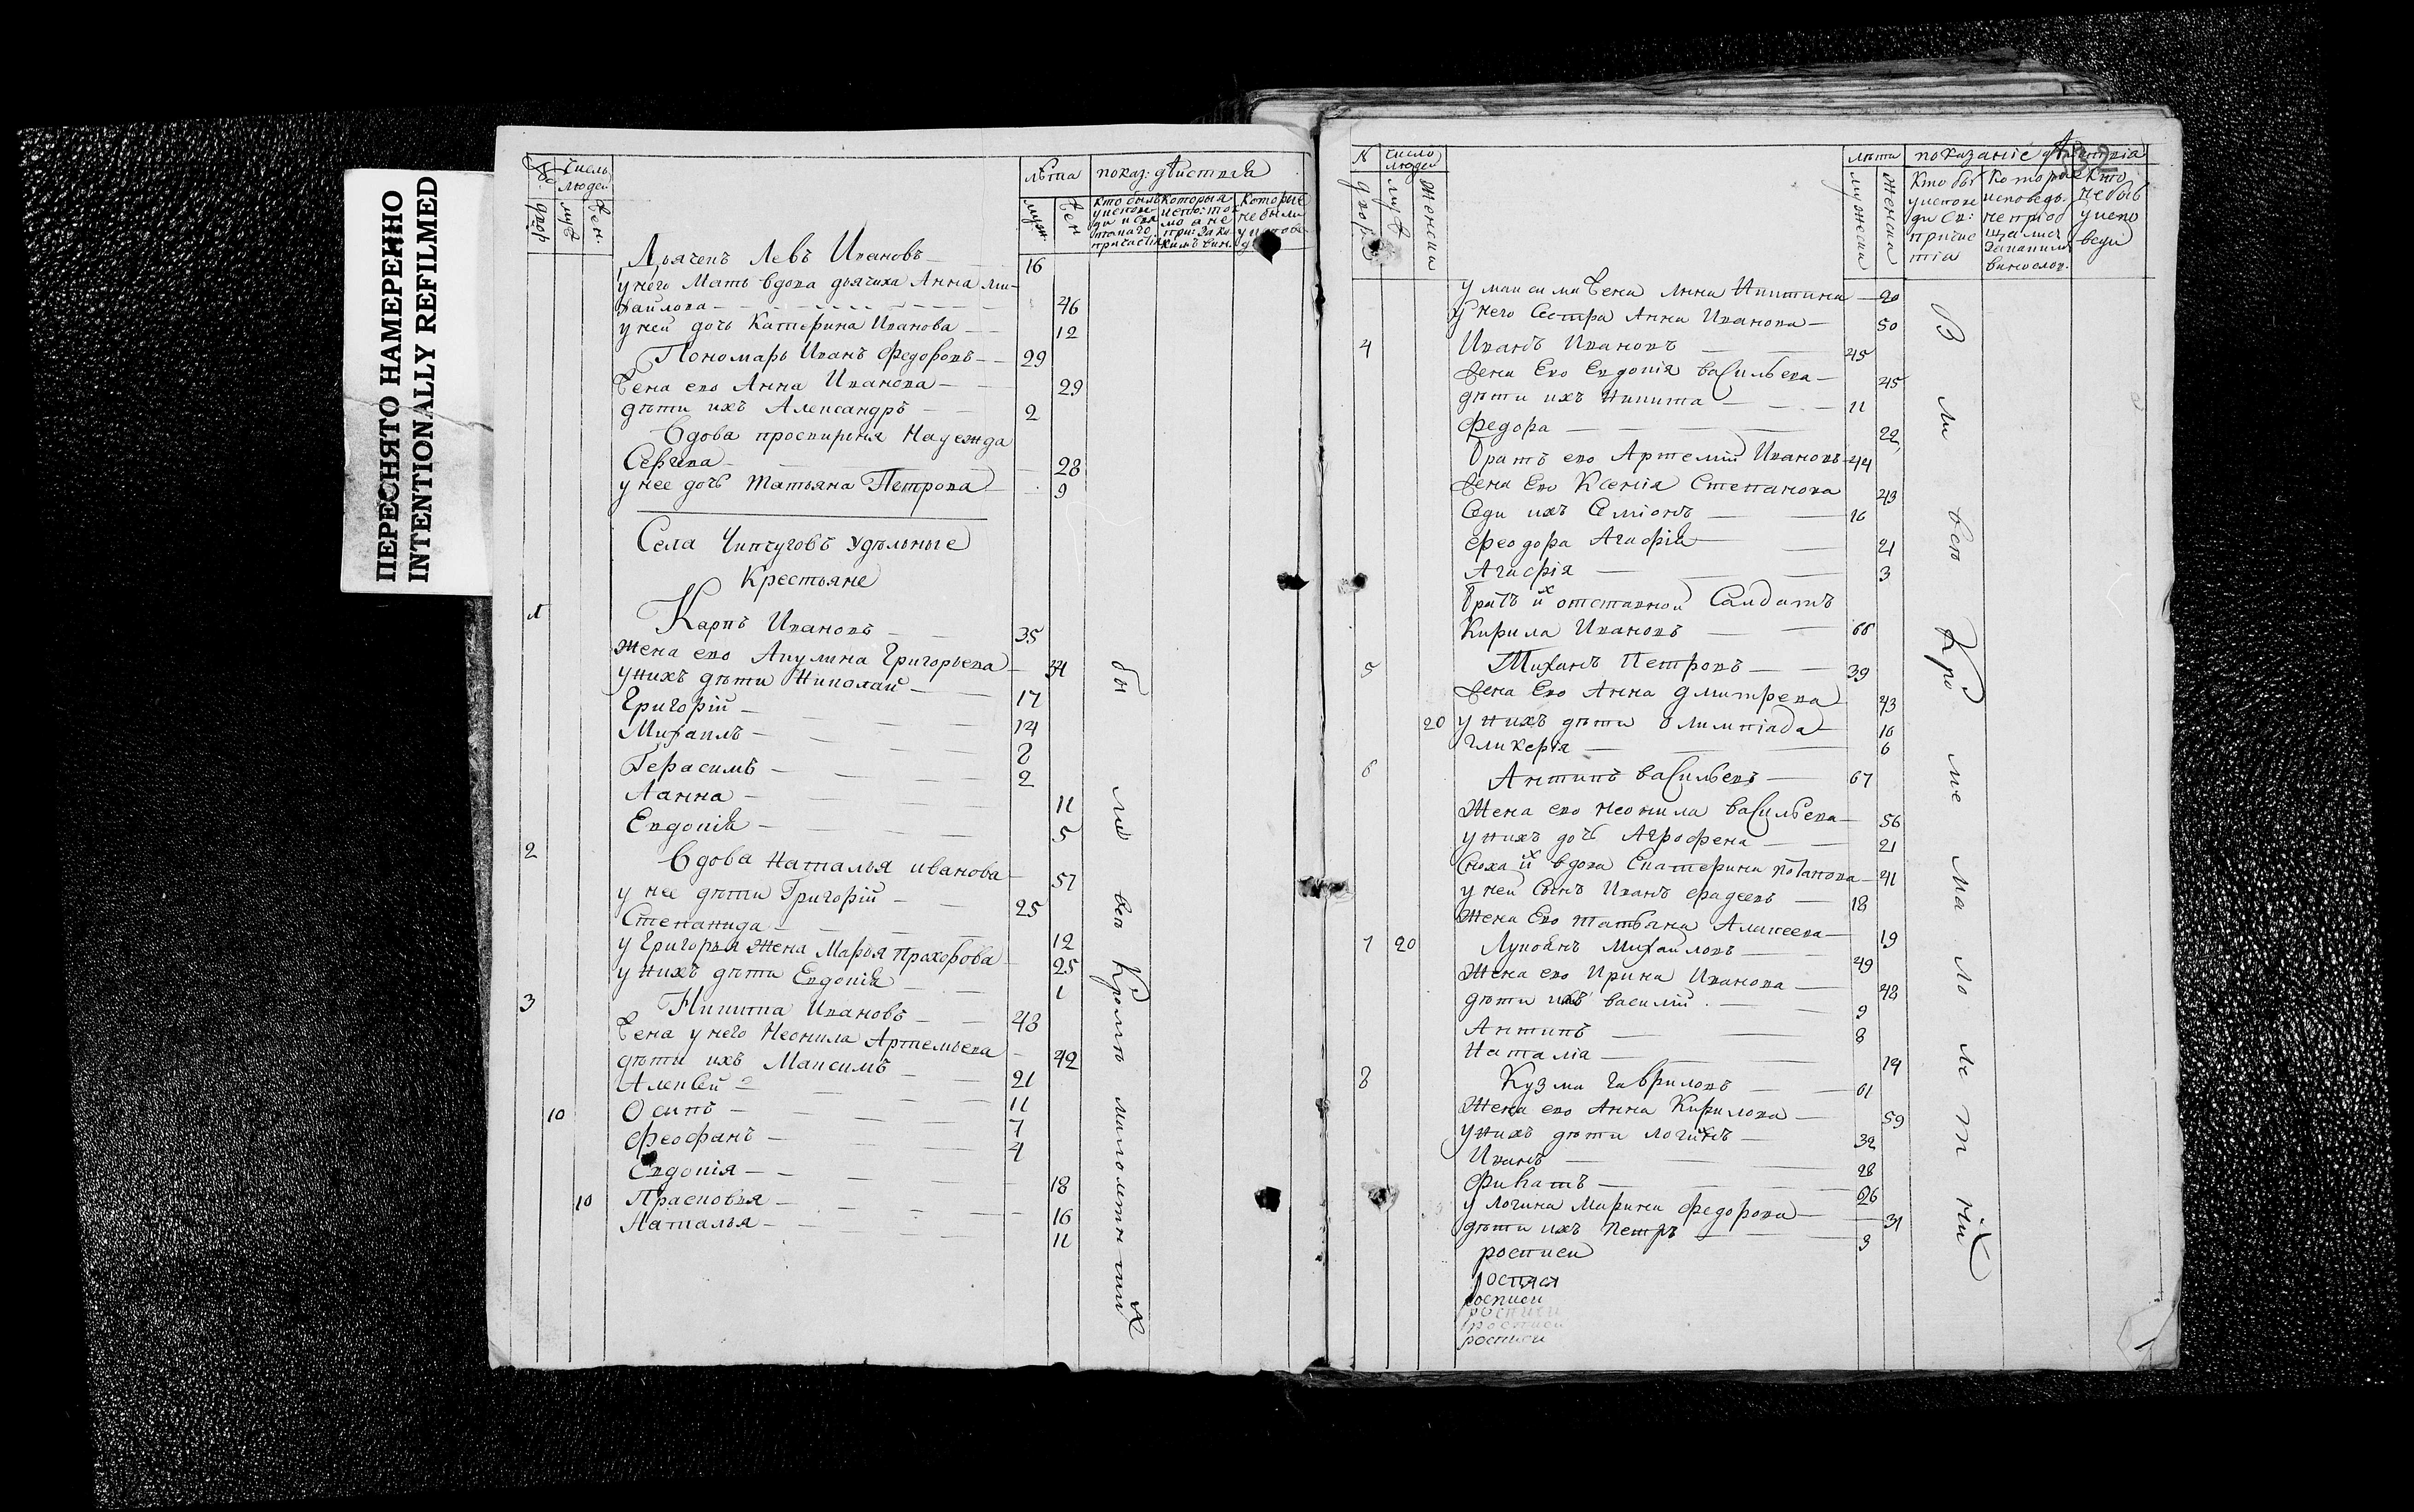 ПЕРЕСНЯТО НАМЕРЕННО
INTENTIONALLY REFILMED
число людей
лѣта показ: дѣиствія
двор
муж
жен.
муж.
жен
Дьячекъ Левъ Ивановъ 16
у него Мать вдова дьячиха Анна Ми-
хайлова 46
у ней дочь Катерина Иванова 12
Пономарь Иванъ Федоровъ 29
жена ево Анна Иванова 29
дѣти ихъ Александръ 2
Вдова просвирня Надежда
Сергѣева 28
у нее дочь Татьяна Петрова 9
Села Чипчуговъ удѣльные
Крестьяне
1
Карпъ Ивановъ 35
жена ево Акулина Григорьева 34
у нихъ дѣти Николай 17
Григорій 14
Михаилъ 8
Герасимъ 2
Анна 11
Евдокія 5
2 Вдова Наталья иванова 57
у нее дѣти Григорій 25
Степанида 12
у Григорья жена Марья Прахорова 25
у нихъ дѣти Евдокія 1
3 Никита Ивановъ 48
жена у него Неонила Артемьева 42
дѣти ихъ Максимъ 21
Алексѣй 11
10 Осипъ 7
Феофанъ 4
Евдокія 18
10 Прасковья 16
Наталья 11
бы ли всѣ Кромѣ малолѣтнихъ
N число людей
лѣта показаніе дѣиствія
двор
муж
женска
мужеска
женска
у максима жена Анна Никитина 20
У него Сестра Анна Иванова 50
4 Иванъ Ивановъ 45
жена Ево Евдокія васильева 45
дѣти ихъ Никита 11
Федора 22
братъ ево Артемій Ивановъ 44
жена Ево Ксенія Степанова 43
Семіонъ 16
Феодора 21
Агафія 3
братъ их отставной Салдатъ
Кирила Ивановъ 66
5 Петровъ 39
жена Ево Анна дмитрева 43
20 у нихъ дѣти Олимпіада 10
гликерія 6
6 Антипъ васильевъ 67
Жена ево Неонила васильева 56
у нихъ дочь Агрофена 21
Сноха их вдова Екатерина потапова 41
у ней Сынъ Иванъ фадеевъ 18
жена Ево татьяна Алексеева 19
7 20 Лукоянъ Михаиловъ 49
Жена ево Ирина Иванова 48
дѣти ихъ василій 9
Антипъ 8
Наталіа 14
8 Кузма Гавриловъ 61
Жена ево Анна Кирилова 59
у нихъ дѣти логинъ 32
Иванъ 28
Филатъ 26
у логина Марина федорова 31
дѣти ихъ Петръ 3
росписи
росписи
росписи
росписи
росписи
росписи
Бы ли всѣ Кро ме ма ло ле т них